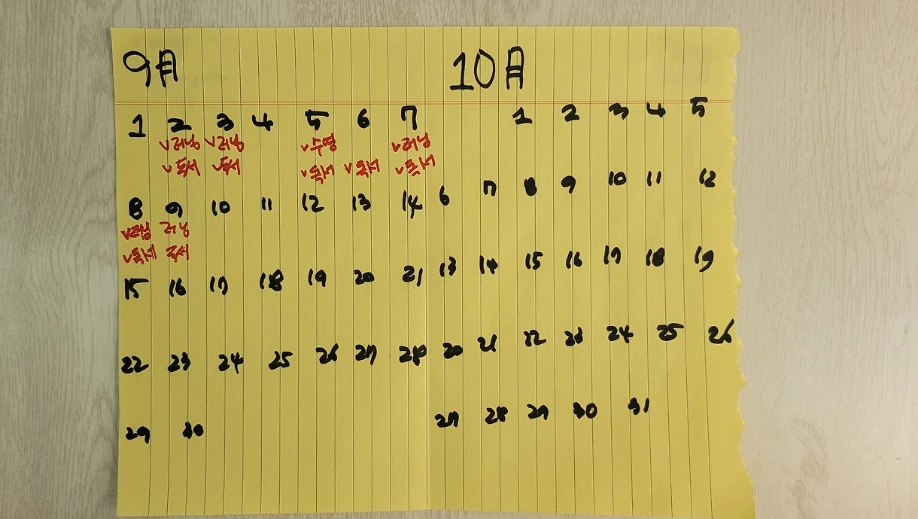 9月 10月
1 2 3 4 5 6 7 1 2 3 4 5
v러닝 v러닝 v수영 v러닝
v독서 v독서 v독서 v독서 v독서
8 9 10 11 12 13 14 6 7 8 9 10 11 12
v러닝 러닝
v독서 독서
15 16 17 18 19 20 21 13 14 15 16 17 18 19
22 23 24 25 26 27 28 20 21 22 23 24 25 26
29 30 27 28 29 30 31